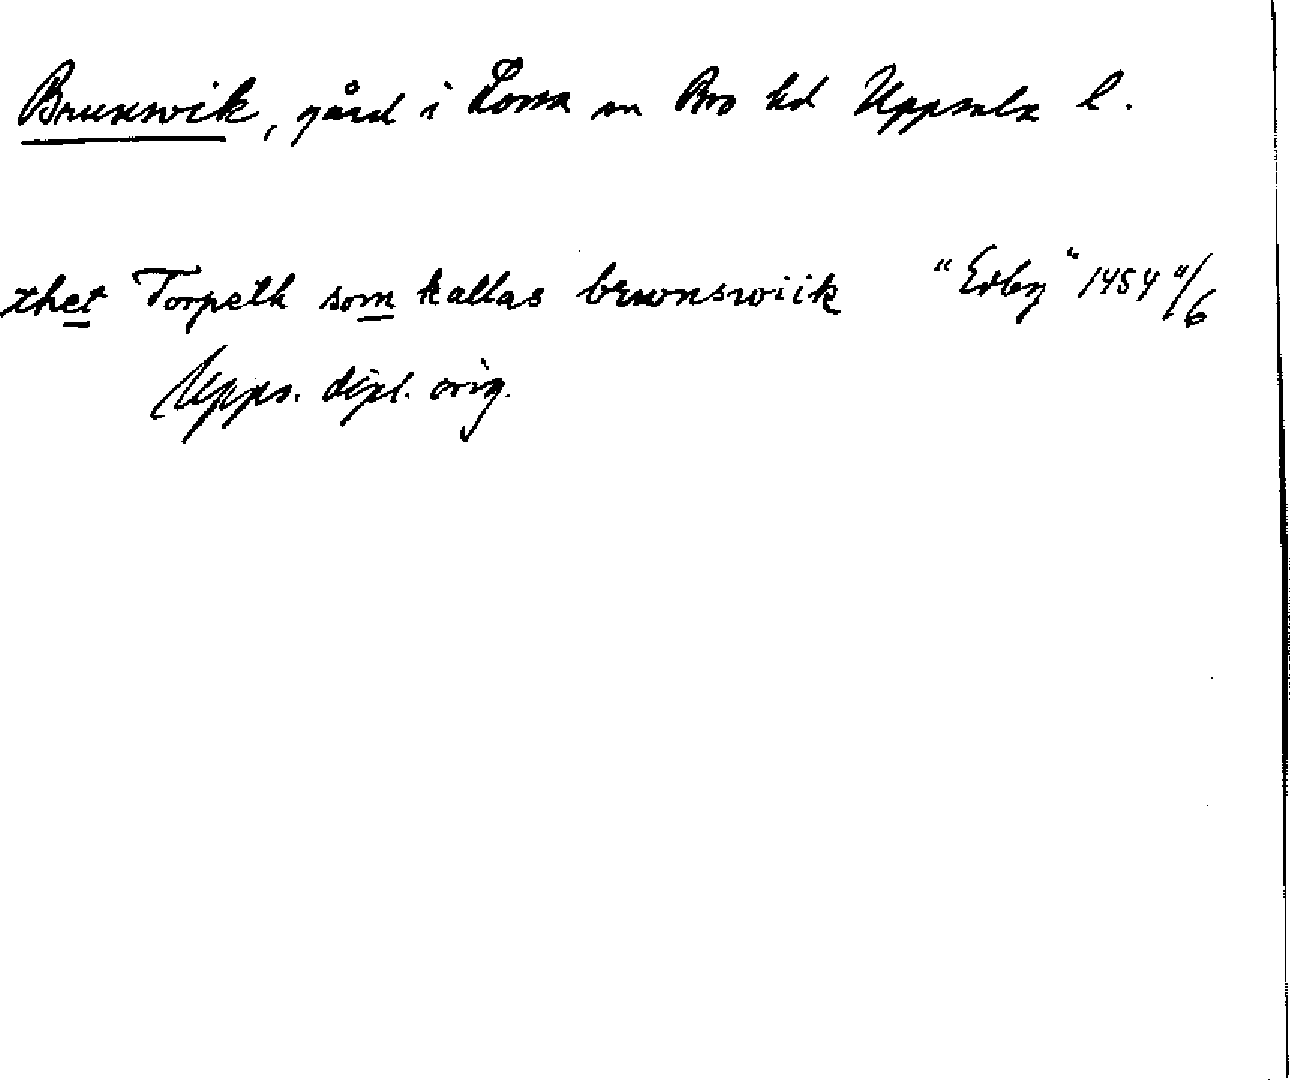 Brunswik, gård i Lossa sn Bro hd Uppsala l.
thet Torpeth som kallas brwnswiik "Edby" 1454 4/6
Upps. dipl. orig.